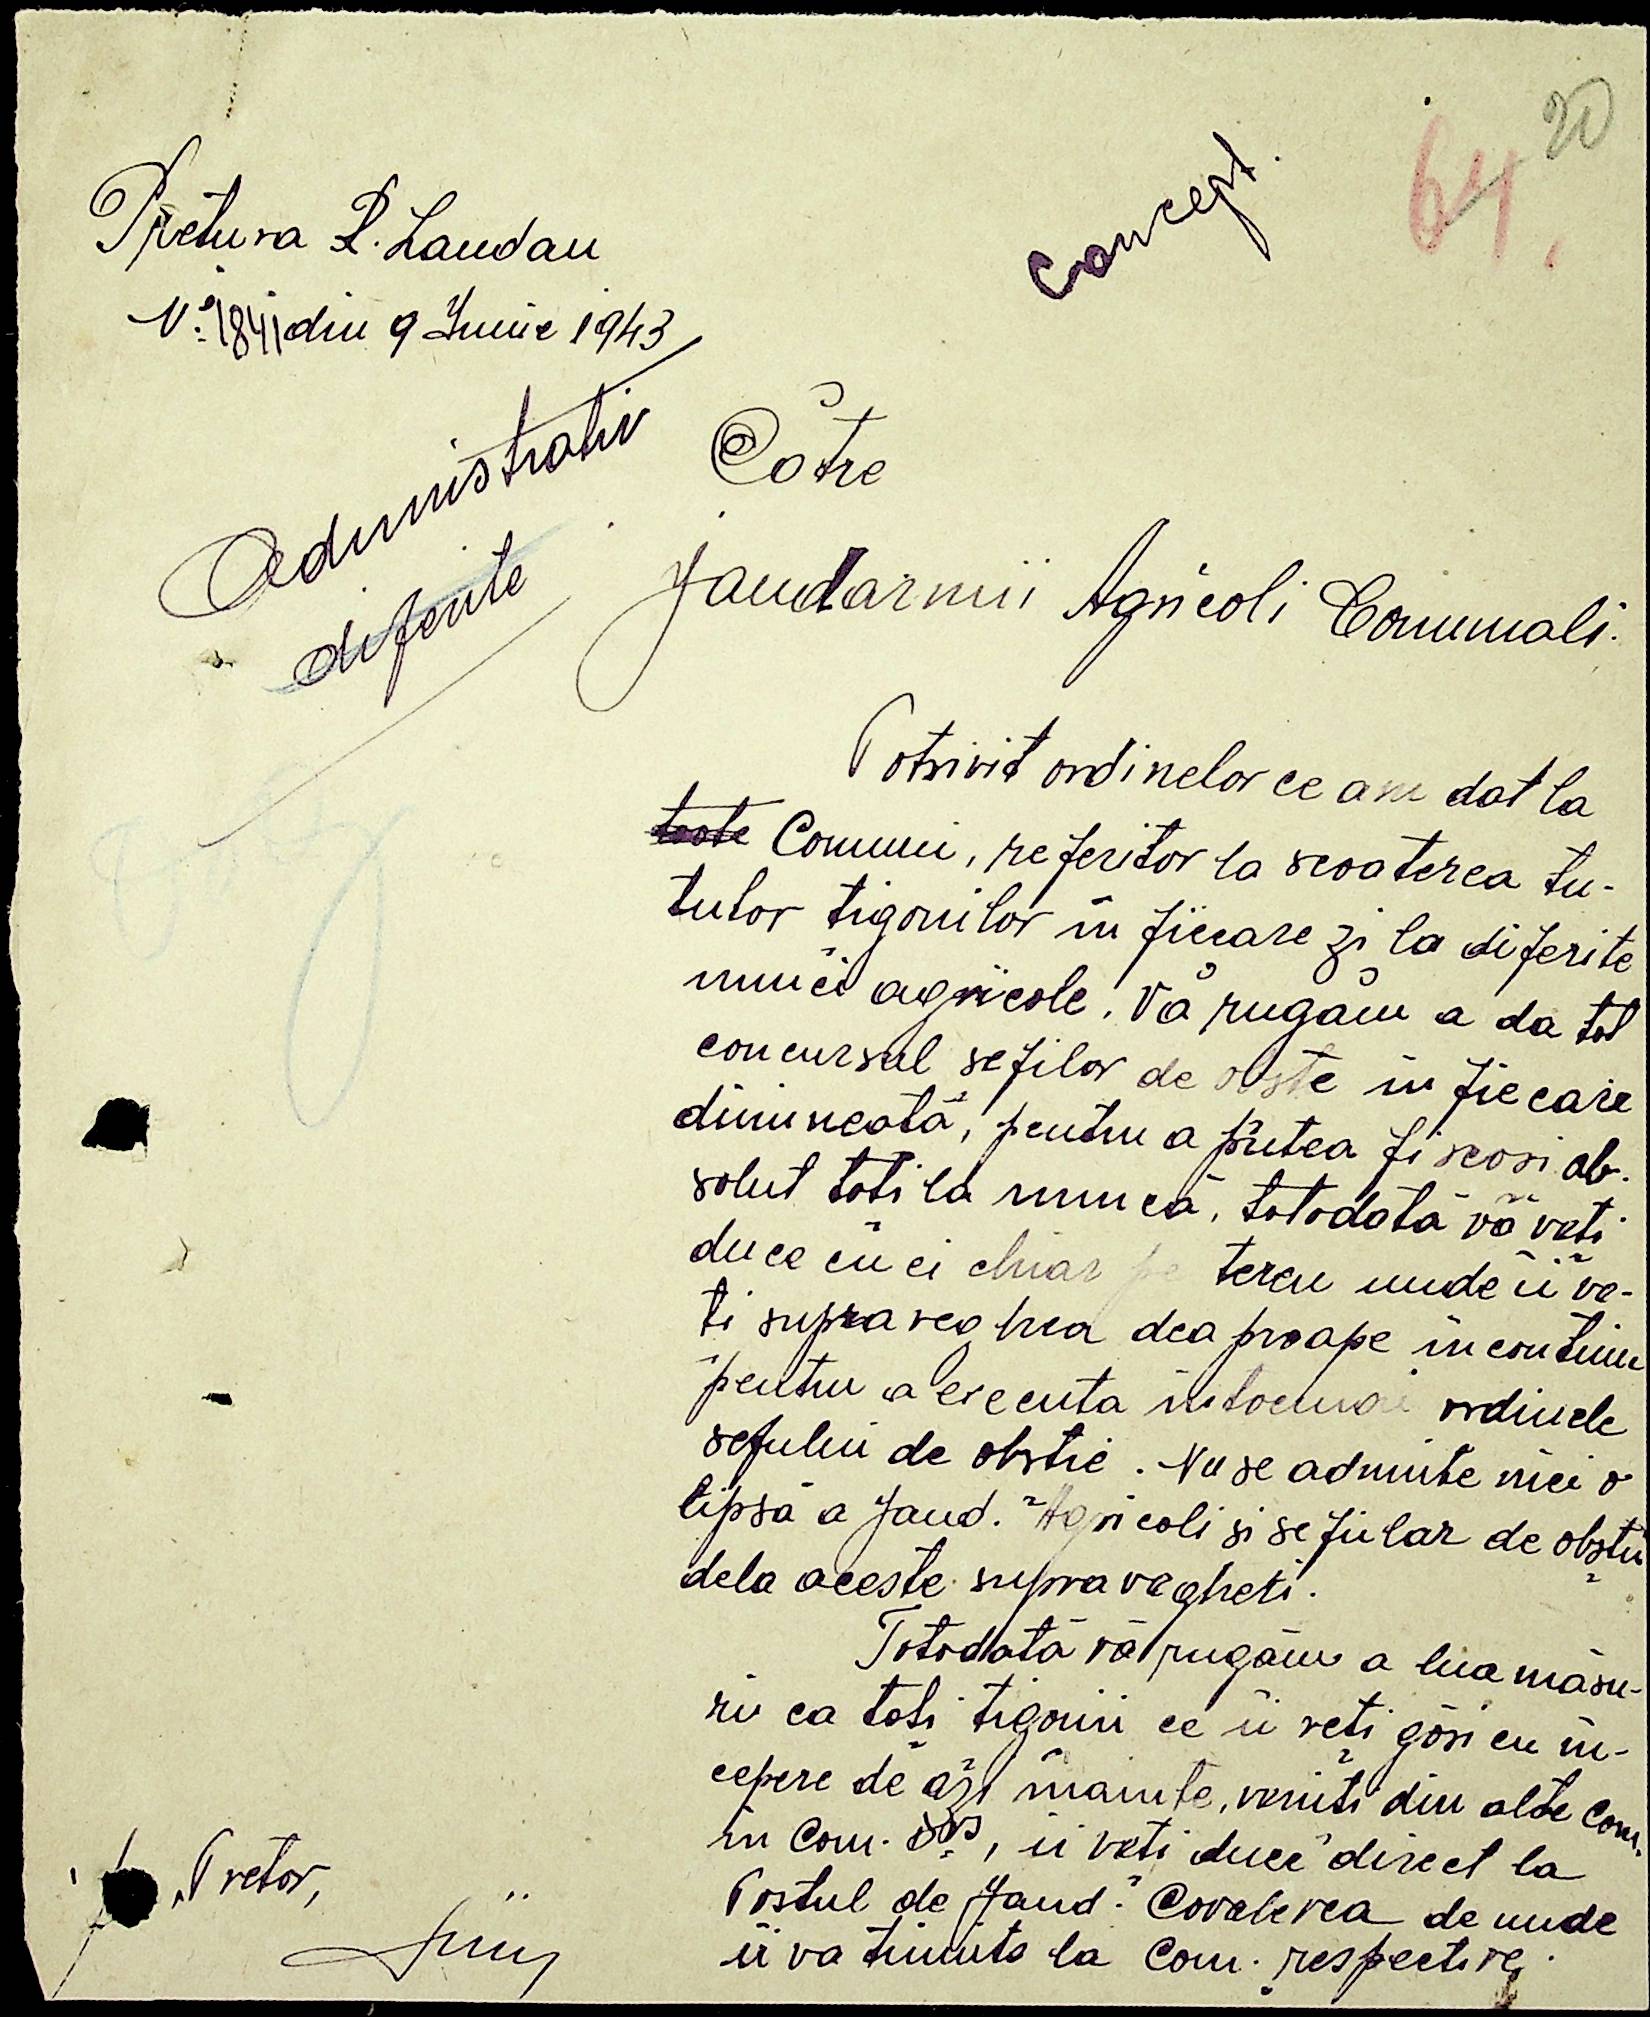 20
64.
Concept.
Pretura R. Landau
Nº 1841 din 9 Iunie 1943
Administrativ
diferite
Către
Jandarmii Agricoli Comunali.
Potrivit ordinelor ce am dat la
toate Comuni, referitor la scoaterea tu-
tulor tigonilor în fiecare zi la diferite
munci agricole. Vă rugăm a da tot
concursul sefilor de obste in fiecare
dimineată, pentru a putea fi scosi ab-
solut toti la muncă, totodată vă veti
duce cu ei chiar pe teren unde ii ve-
ti supraveghea deaproape incontinu
pentru a executa intocmai ordinele
sefului de obstie. Nu se admite nici o
lipsă a Jand. Agricoli si sefiilar de obstii
dela aceste supravegheri.
Totodată vă rugăm a lua măsu-
ri ca toti tigonii ce ii veti gări cu in-
cepere de azi inainte, veniti din alte com.
in Com. dvs, ii veti duce direct la
Postul de Jand. Covalevca de unde
ii va trimite la Com. respective.
Pretor,